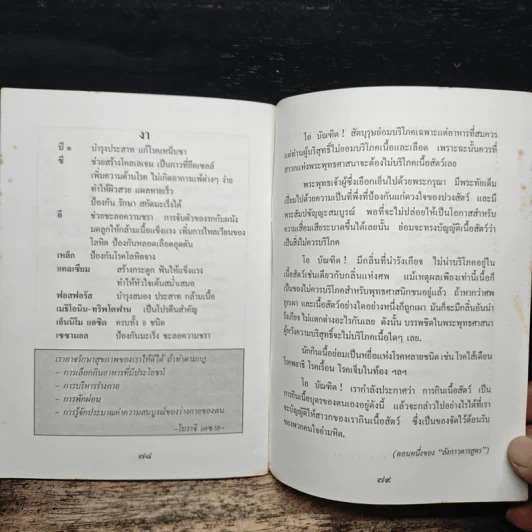 งา
บี ๑ บำรุงประสาท แก้โรคเหน็บชา
ซี ช่วยสร้างโคลเลเจน เป็นกาวที่ยึดเซลล์
เพิ่มความต้านโรค ไม่เกิดอาการแพ้ต่างๆ ง่าย
ทำให้ผิวสวย แผลหายเร็ว
ป้องกัน รักษา สกัดมะเร็งได้
อี ช่วยชะลอความชรา การจับตัวของรกกับผนัง
มดลูกให้กล้ามเนื้อแข็งแรง เพิ่มการไหลเวียนของ
โลหิต ป้องกันหลอดเลือดอุดตัน
เหล็ก ป้องกันโรคโลหิตจาง
แคลเซียม สร้างกระดูก ฟันให้แข็งแรง
ทำให้หัวใจเต้นสม่ำเสมอ
ฟอสฟอรัส บำรุงสมอง ประสาท กล้ามเนื้อ
เมธิโอนิน-ทริพโตฟาน เป็นโปรตีนสำคัญ
เอ็นอีโม แอซิด ครบทั้ง ๘ ชนิด
เซซามอล ป้องกันมะเร็ง ชะลอความชรา
เราอาจรักษาสุขภาพของเราให้ดีได้ ถ้าทำตามกฎ
- การเลือกกินอาหารที่มีประโยชน์
- การบริหารร่างกาย
- การพักผ่อน
- การรู้จักประมาณค่าความสมบูรณ์ของร่างกายของตน
๗๘
โอ บัณฑิต ! สัตบุรุษย่อมบริโภคเฉพาะแต่อาหารที่สมควร
แต่ท่านผู้บริสุทธิ์ไม่ยอมบริโภคเนื้อและเลือด เพราะฉะนั้นควรที่
สาวกแห่งพระพุทธศาสนาจะต้องไม่บริโภคเนื้อสัตว์เลย
พระพุทธเจ้าผู้ซึ่งเยือกเย็นไปด้วยพระกรุณา มีพระทัยเต็ม
เปี่ยมไปด้วยความเป็นที่พึ่งที่ป้องกันแก่ดวงใจของปวงสัตว์ และมี
พระสัมปชัญญะสมบูรณ์ พอที่จะไม่ปล่อยให้เป็นโอกาสสำหรับ
ความเสื่อมเสียระบาดขึ้นได้เลยนั้น ย่อมจะทรงบัญญัติเนื้อสัตว์ว่า
เป็นสิ่งไม่ควรบริโภค
โอ บัณฑิต ! มีกลิ่นที่น่ารังเกียจ ไม่น่าบริโภคอยู่ใน
เนื้อสัตว์เช่นเดียวกับกลิ่นแห่งศพ แม้เหตุผลเพียงเท่านี้เนื้อก็
เป็นของไม่ควรบริโภคสำหรับพุทธศาสนิกชนอยู่แล้ว ถ้าหากว่าศพ
ถูกเผา และเนื้อสัตว์อย่างใดอย่างหนึ่งก็ถูกเผา มันก็จะมีกลิ่นอันน่า
รังเกียจ ไม่แตกต่างอะไรกันเลย ดังนั้น บรรพชิตในพระพุทธศาสนา
ผู้หวังความบริสุทธิ์จะไม่บริโภคเนื้อใดๆ เลย.
นักกินเนื้อย่อมเป็นเหยื่อแห่งโรคหลายชนิด เช่น โรคไส้เดือน
โรคพยาธิ โรคเรื้อน โรคเจ็บในท้อง ฯลฯ
โอ บัณฑิต ! เรากำลังประกาศว่า การกินเนื้อสัตว์ เป็น
การกินเนื้อบุตรของตนเองอยู่ดังนี้ แล้วจะกล่าวไปอย่างไรได้ที่เรา
จะบัญญัติให้สาวกของเรากินเนื้อสัตว์ ซึ่งเป็นของจัดไว้ต้อนรับ
ของพวกคนใจอำมหิต.
(ตอนหนึ่งของ “ลังกาวตารสูตร”)
๗๙